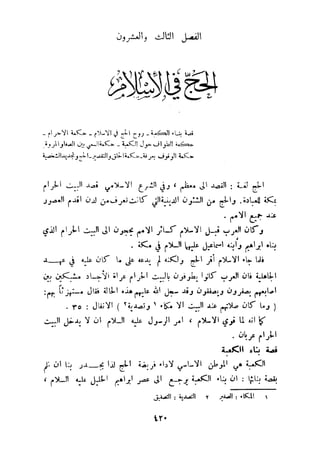 الفصل الثالث والعشرون
الحج في الإسلام
ـ قصة بناء الكعبة ـ روح الحج في الاسلام ـ حكمة الاحرام ـ
حكمة الطواف حول الكعبة ـ حكمة السعي بين الصفا والمروة
حكمة الوقوف بعرفة ـ حكمة الحلق والتقصير ـ الحج وتهذيبه للشخصية
الحج لغة : القصد الى معظم ، وفي الشرع الاسلامي قصد البيت الحرام
بمكة للعبادة . والحج من الشئون الدينية التي كانت معروفة لدى اقدم العصور
عند جميع الامم .
وكان العرب قبل الاسلام كسائر الامم يحجون الى البيت الحرام الذي
بناه ابراهيم وابنه اسماعيل عليهما السلام في مكة .
فلما جاء الاسلام أقر الحج ولكنه لم يدعه الى ما كان عليه في عهد
الجاهلية فان العرب كانوا يطوفون بالبيت الحرام عراة الأجساد مشبكين بين
اصابعهم يصفرون ويصفقون وقد سجل الله عليهم هذه الحالة فقال مستهزئاً بهم :
( وما كان صلاتهم عند البيت إلا مكاء ١ وتصدية ٢ ) الانفال : ٣٥ .
كما انه لما قوي الاسلام ، امر الرسول عليه السلام ان لا يدخل البيت
الحرام عريان .
قصة بناء الكعبة
الكعبة هي الموطن الاساسي لاداء فريضة الحج لذا يجدر بنا ان نلم
بقصة بنائها : ان بناء الكعبة يرجع الى عصر ابراهيم الخليل عليه السلام ،
١ المكاء : الصفير ٢ التصدية : التصفيق
٤٢٠